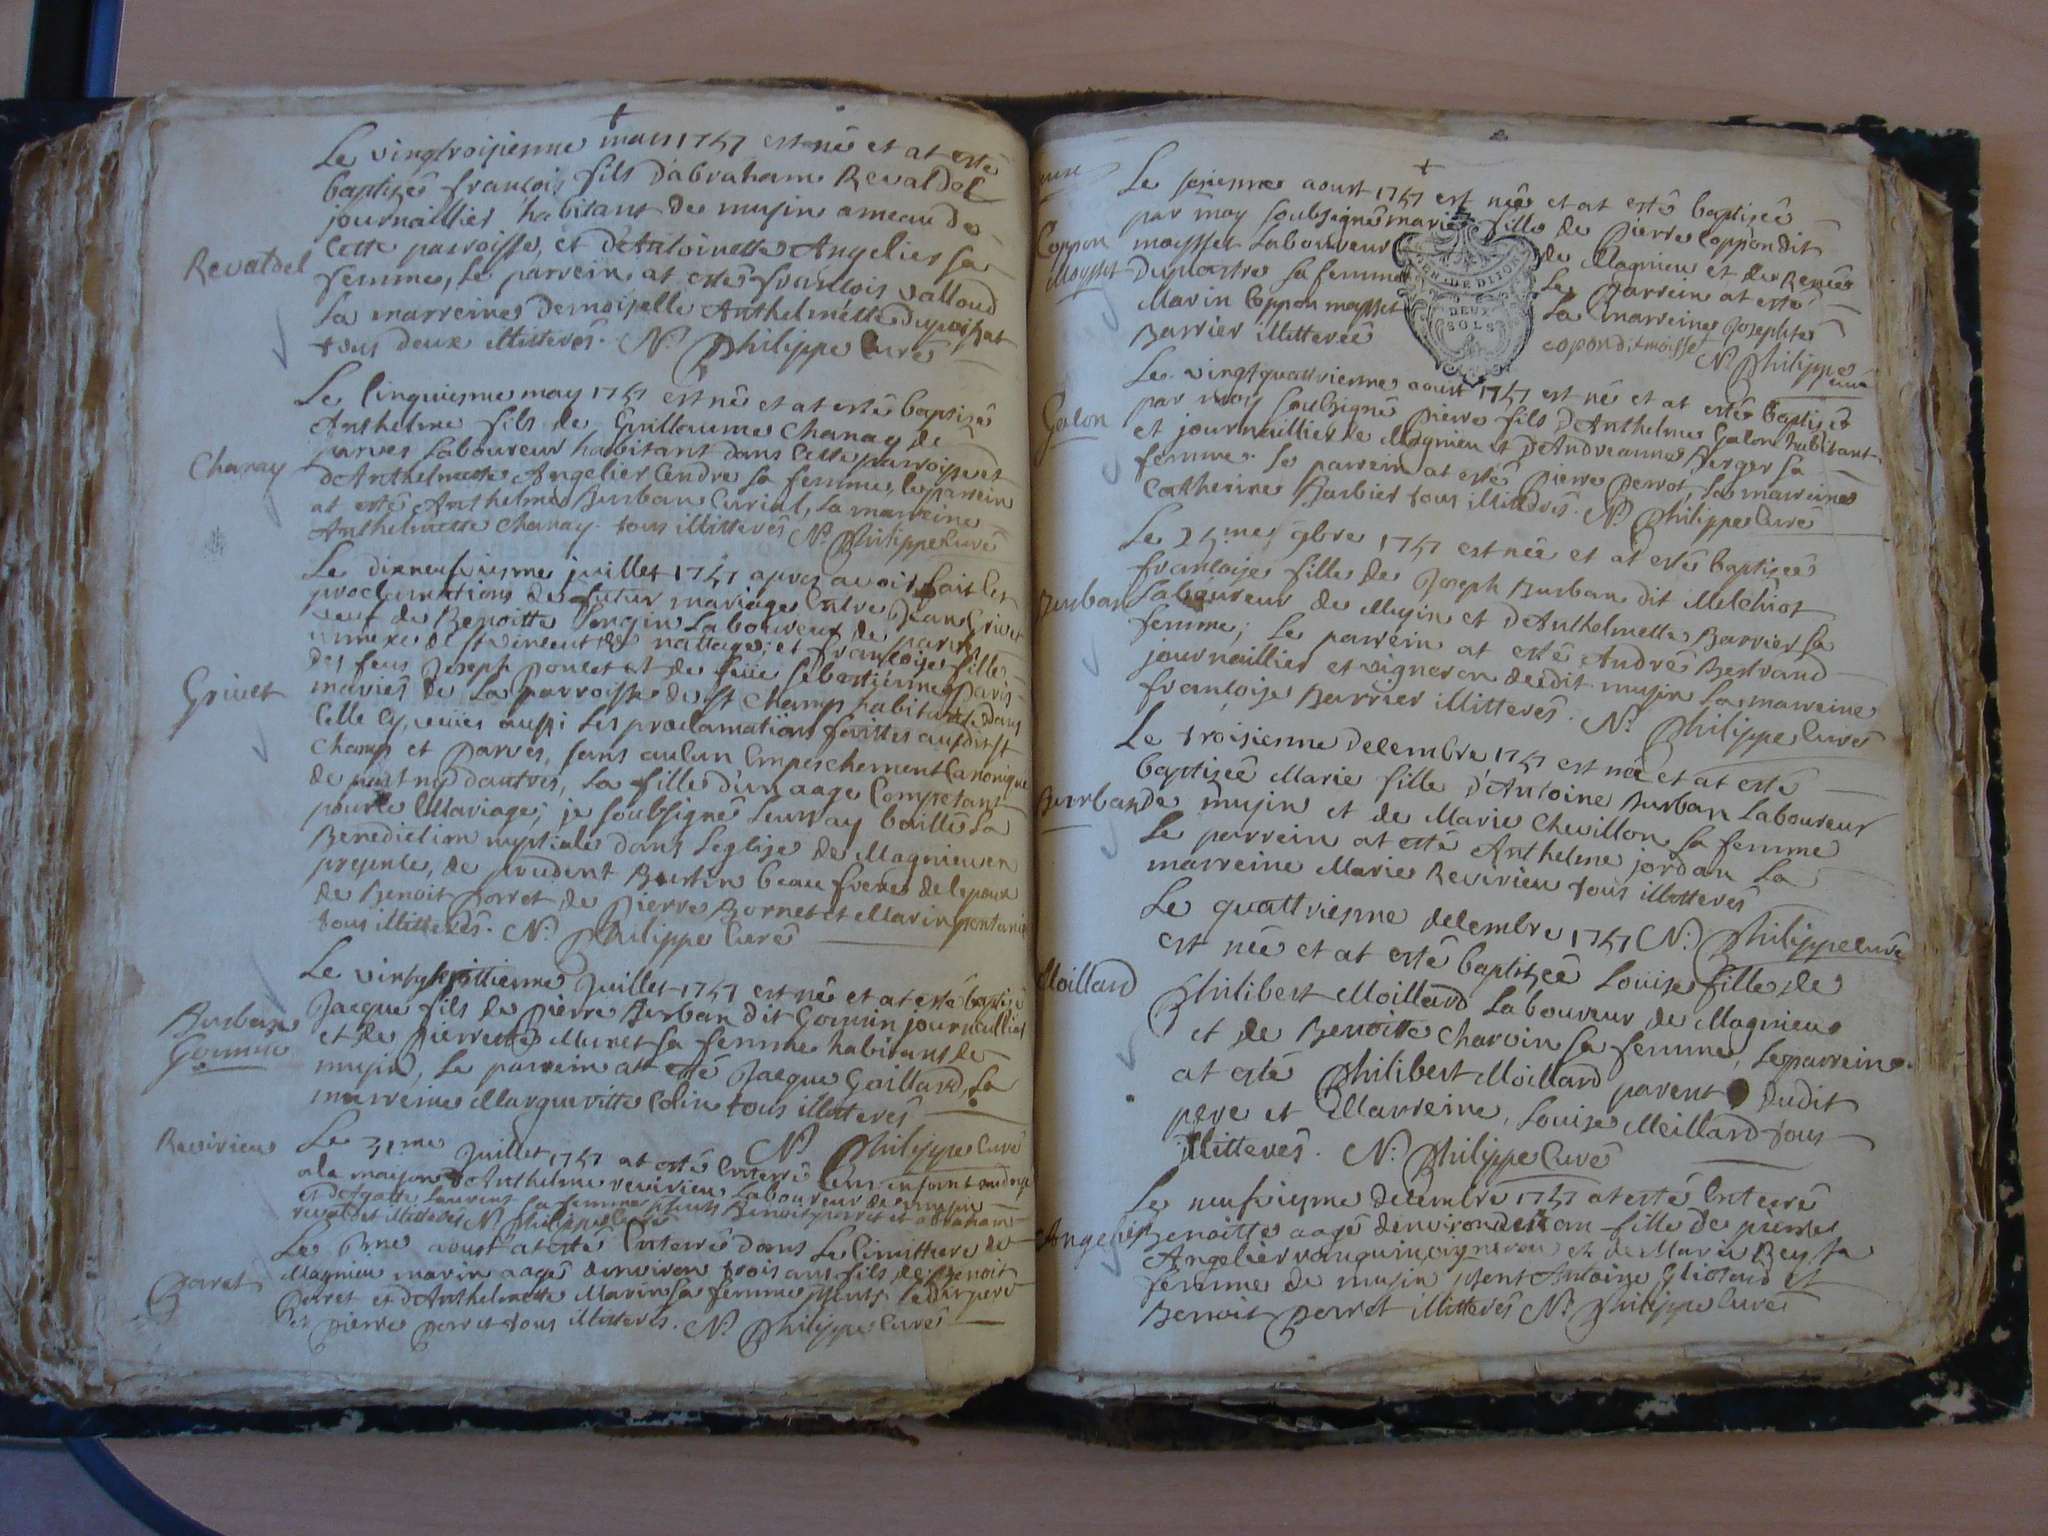 Le vingtroisiesme mars 1747 est né et at esté
baptisée françois fils d'abraham Revaldel
journaillier habitant de musin ameau de
Cette parroisse, et d'Antoinette Angelier sa
Revaldel
femme, Le parrein at esté françois Valloud
La marreine demoiselle Anthelmette
tous deux illitterés. N. Philippe Curé
Le Cinquiesme may 1747 est né et at esté baptisé
Anthelme fils de Guillaume Chanay de
parves Laboureur habitant dans Cette parroisse et
Chanay
d'Anthelmette Angelier Cendre sa femme, le parrein
at esté Anthelme Burban Curial, La marreine
Anthelmette Chanay tous illitterés N. Philippe Curé
Le dixneufviesme juillet 1747 apres avoir fait les
proclamations du futur mariage Entre Jean Grivet
veuf de Benoitte Songin Laboureur de parves
annexe de st vincent de nattage; et françoise fille
des feus Joseph Poncet et de feüe Sebastienne Paris
Grivet
mariés de La parroisse de st Champ habitante dans
Celle Cy, veües aussi Les proclamations faittes audit st
Champ et Parves, sans aucun Empeschement Canonique
de part ny d'autres, La fille d'un aage Competant
pour le Mariage; je soubsigné Leur ay baillé La
Benediction nuptiale dans Leglise de Magnieu en
presence, de prudent Burtin beau frere de lepoux
de Benoit Porret de Pierre Bornet et Marin
tous illitterés. N. Philippe Curé
Le vingtseptiesme Juillet 1747 est né et at esté baptisé
Burban
Jacque fils de Pierre Burban dit Gonnin journaillier
Gonnin
et de Pierrette Muret sa femme habitant de
musin, Le parrein at esté Jacque Gaillard, La
marreine Marguevitte Colin tous illitterés
N. Philippe Curé
Revirieu
Le 31me Juillet 1747 at esté Enterré Un enfant
a la maison d'Anthelme revirieu Laboureur de musin
et d'Agatte Laurent sa femme pnts Benoit porret et abraham
revaldel illitterés N. Philippe Curé
Le 6me aoust at esté Enterré dans Le Cimittiere de
Magnieu marin aagé d'environ trois ans fils de Benoit
Porret
Porret et d'Anthelmette Marin sa femme pnts Ledit pere
et pierre porret tous illitterés. N. Philippe Curé
Le sesiesme aoust 1747 est née et at esté baptisée
par moy soubsigné marie fille de Pierre Coppon dit
Coppon
moysset Laboureur de Magnieu et de Renée
Moysset
Duplastre sa femme Le Parrein at esté
GEN. DE DIJON
DEUX
SOLS
Marin Coppon moysset La marreine Josephte
Barrier illitterée
N. Philippe
curé
Le vingtquattriesme aoust 1747 est né et at esté baptisé
par moy soubsigné pierre fils d'Anthelme Galon habitant
Galon
et journaillier de Magnieu et d'Andreanne Berger sa
femme. Le parrein at esté Pierre Perrot, La marreine
Catherine Barbier tous illitterés. N. Philippe Curé
Le 25me 9bre 1747 est née et at esté baptisée
françoise fille de Joseph Burban dit Melchiot
Burban
Laboureur de Musin et d'Anthelmette Barrier sa
femme; Le parrein at esté André Bertrand
journaillier et vigneron dudit musin La marreine
françoise Barrier illitterés. N. Philippe Curé
Le troisiesme decembre 1747 est née et at esté
baptisée Marie fille d'Antoine Burban Laboureur
Burban
de musin et de Marie Chevillon sa femme
Le parrein at esté Anthelme jordan La
marreine Marie Revirieu tous illitterés
Le quattriesme decembre 1747 N. Philippe curé
est née et at esté baptisée Louise fille de
Moillard
Philibert Moillard Laboureur de Magnieu
et de Benoitte Charvin sa femme, Le parrein
at esté Philibert Moillard parent dudit
pere et Marreine, Louise Meillard tous
illitterés. N. Philippe Curé
Le neufviesme decembre 1747 at esté Enterré
Angelier
Benoitte aagé d'environ un an fille de pierre
Angelier vigneron et de Marie Rey sa
femme de musin pnts Antoine et
Benoit Porret illitterés N. Philippe Curé